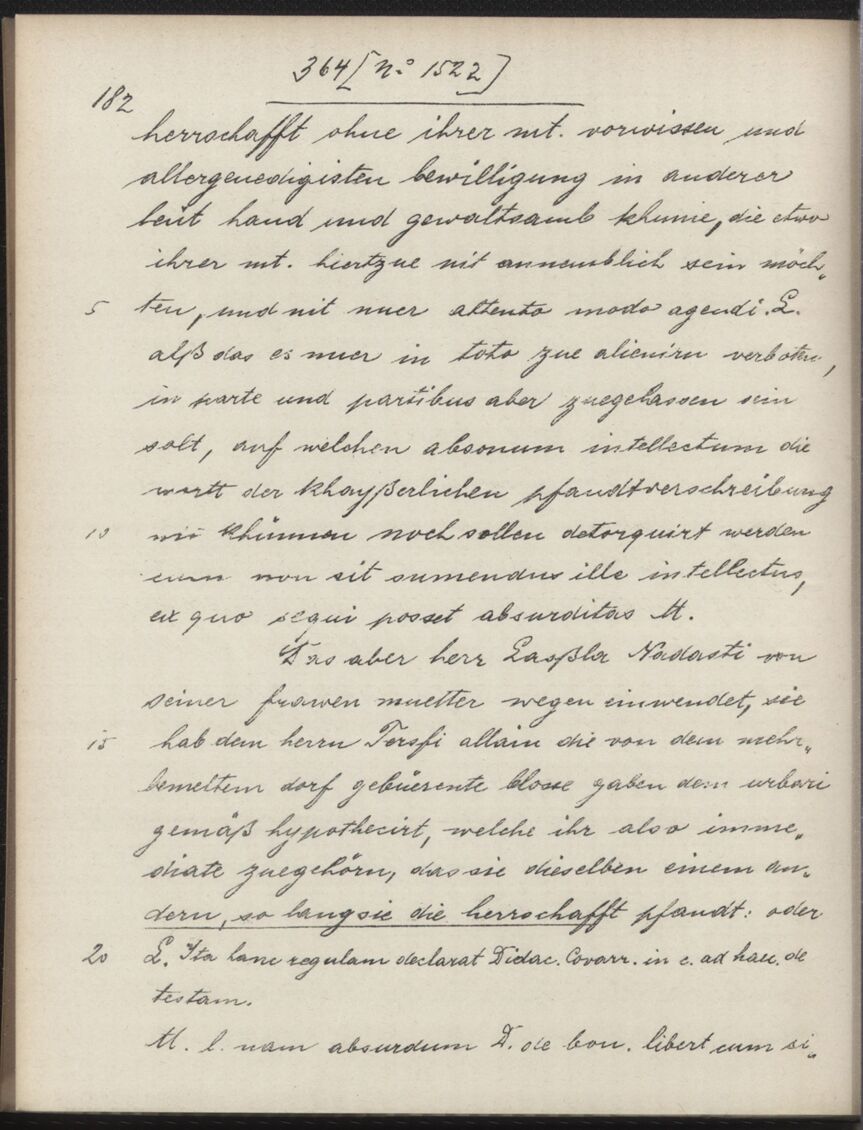 364 [No 1522]
182
herrschafft ohne ihrer mt. vorwissen und
allergenedigisten bewilligung in anderer
leüt hand und gewaltsamb khume, die etwo
ihrer mt. hiertzue nit annemblich sein möch„
5 ten, und nit nuer attento modo agendi. L.
alß das es nuer in toto zue alienirn verboten,
in parte und partibus aber zuegelassen sein
solt, auf welchen absonum intellectum die
wortt der khayßerlichen pfandtverschreibung
10 nit khünnen noch sollen detorquirt werden
cum non sit sumendus ille intellectus,
ex quo sequi posset absurditas M.
Das aber herr Laßla Nadasti von
seiner frawen muetter wegen einwendet, sie
15 hab dem herrn Tersfi allain die von dem mehr„
bemeltem dorf gebüerente blosse gaben dem urbari
gemäß hypothecirt, welche ihr also imme„
diate zuegehörn, das sie dieselben einem an„
dern, so lang sie die herrschafft pfandt: oder
20 L. Ita hanc regulam declarat Didac. Covarr. in c. ad hau. de
testam.
M. l. nam absurdum D. de bon. libert cum si„